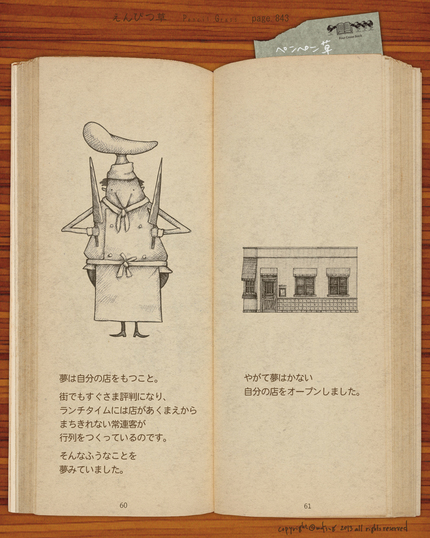 ぺんぺん草
夢は自分の店をもつこと。
街でもすぐさま評判になり、
ランチタイムには店があくまえから
まちきれない常連客が
行列をつくっているのです。
そんなふうなことを
夢みていました。
60
やがて夢はかない
自分の店をオープンしました。
61